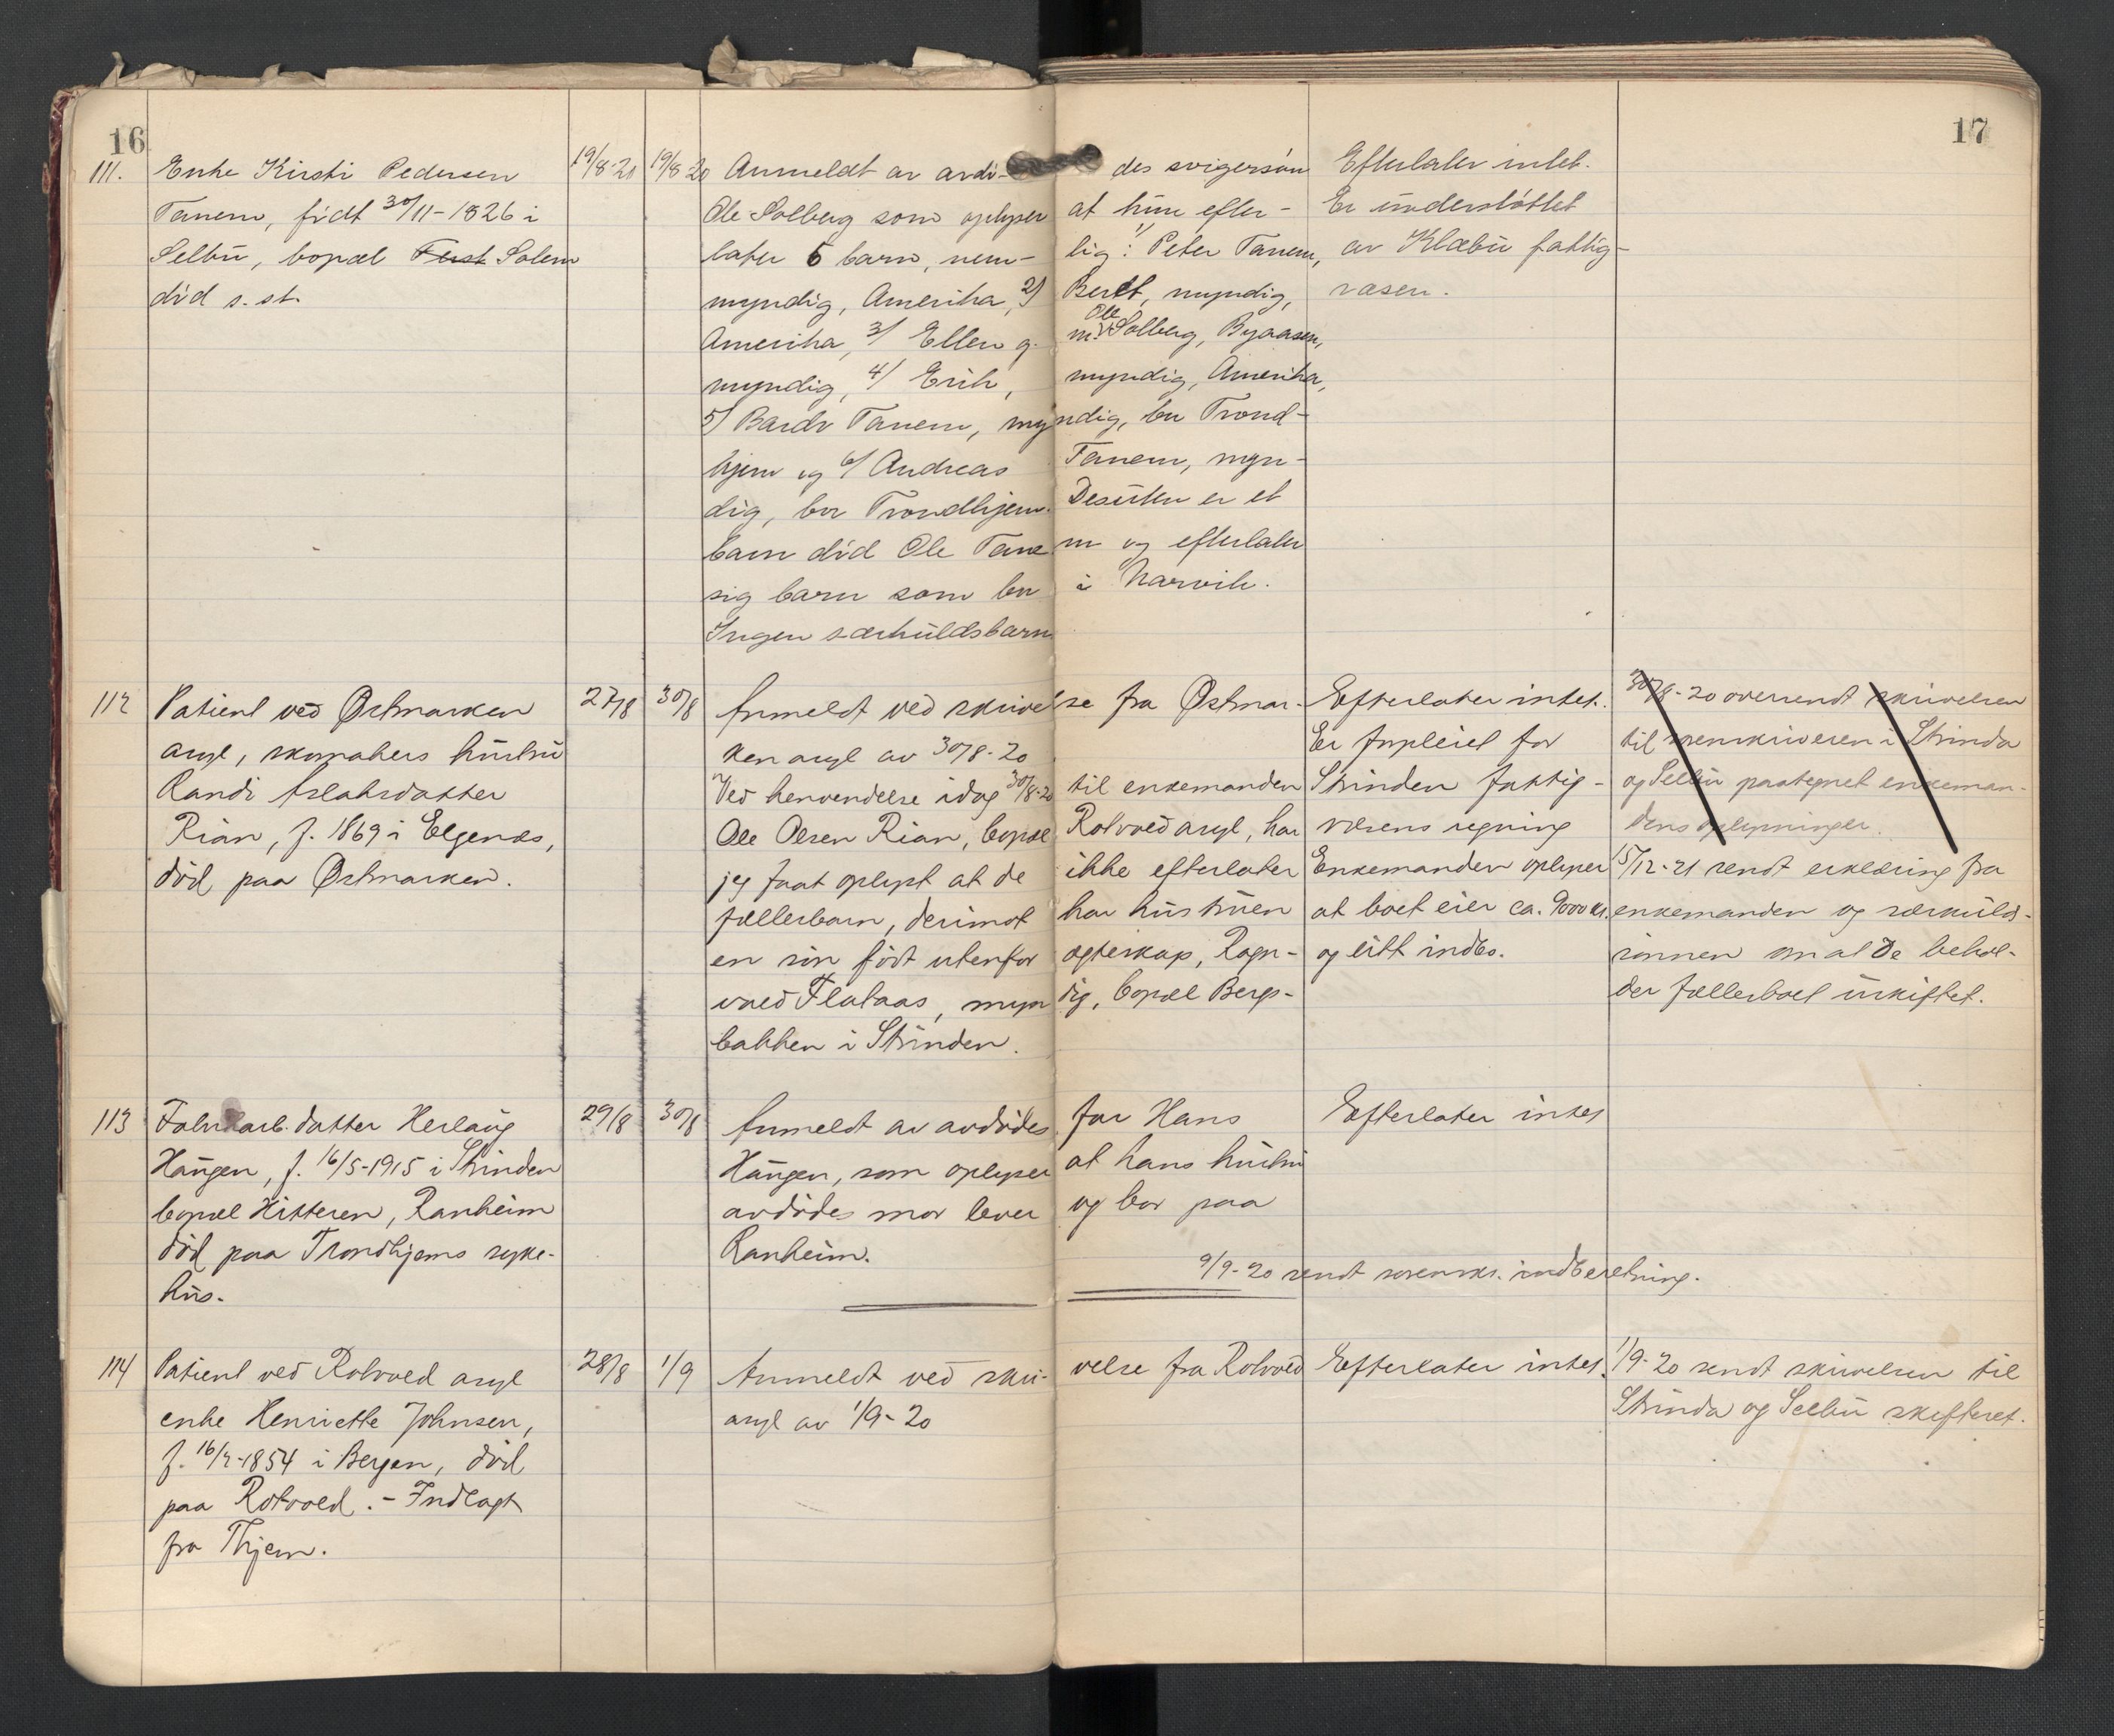 16
17
111.
Enke Kirsti Pedersen
Tanem, född 30/11-1826 i
Selbu, bopæl Tust Solem
död s. st.
19/8-20
19/8-20
Anmeldt av avdö- des svigersøn
Ole Solberg som oplyser at hun efter-
later 6 barn, nem- lig: 1/ Peter Tanem,
myndig, Amerika, 2/ Beret, myndig,
Amerika, 3/ Ellen g. m. Ole Solberg, Byaasen,
myndig, 4/ Erik, myndig, Amerika,
5/ Bardo Tanem, myndig, bor Trond-
hjem og 6/ Andreas Tanem, myn-
dig, bor Trondhjem. Desuten er et
barn död Ole Tanem og efterlater
sig barn som bor i Narvik.
Ingen særkuldsbarn
Efterlater intet.
Er understøttet
av Klæbu fattig-
væsen.
112
Patient ved Østmarken
asyl, skomakers hustru
Randi Aslaksdatter
Rian, f. 1869 i Elgenes,
död paa Østmarken.
27/8
30/8
Anmeldt ved skrivelse fra Østmar-
ken asyl av 30/8-20
Ved henvendelse idag 30/8-20 til enkemanden
Ole Olsen Rian, bopæl Rotvold asyl, har
jeg faat oplyst at de ikke efterlater
fællesbarn, derimot har hustruen
en sön født utenfor ægteskap, Ragn-
vald Flataas, myndig, bopæl Bergs-
bakken i Strinden.
Efterlater intet.
Er forpleiet for
Strinden fattig-
væsens regning
Enkemanden oplyser
at boet eier ca. 9000 kr.
og litt indbo.
30/8-20 oversendt skrivelsen
til sorenskriveren i Strinda
og Selbu paategnet enkeman-
dens oplysninger.
15/12-21 sendt erklæring fra
enkemanden og særkulds-
sønnen om at de behol-
der fællesboet uskiftet.
113
Fabrikarb. datter Herlaug
Haugen, f. 16/5-1915 i Strinden
bopæl Hitteren, Ranheim
död paa Trondhjems syke-
hus.
29/8
30/8
Anmeldt av avdødes far Hans
Haugen, som oplyser at hans hustru
avdødes mor lever og bor paa
Ranheim.
Efterlater intet
9/9-20 sendt sorenskr. indberetning.
114
Patient ved Rotvold asyl
enke Henriette Johnsen,
f. 16/2-1854 i Bergen, död
paa Rotvold. - Indlagt
fra Thjem.
28/8
1/9
Anmeldt ved skri- velse fra Rotvold
asyl av 1/9-20
Efterlater intet.
1/9-20 sendt skrivelsen til
Strinda og Selbu skifteret.